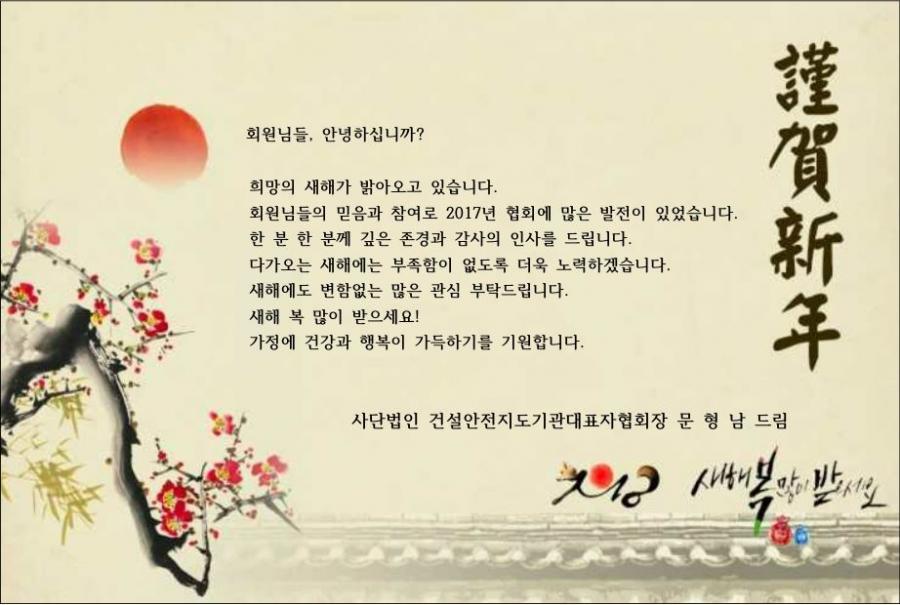 謹賀新年
회원님들, 안녕하십니까?
희망의 새해가 밝아오고 있습니다.
회원님들의 믿음과 참여로 2017년 협회에 많은 발전이 있었습니다.
한 분 한 분께 깊은 존경과 감사의 인사를 드립니다.
다가오는 새해에는 부족함이 없도록 더욱 노력하겠습니다.
새해에도 변함없는 많은 관심 부탁드립니다.
새해 복 많이 받으세요!
가정에 건강과 행복이 가득하기를 기원합니다.
사단법인 건설안전지도기관대표자협회장 문 형 남 드림
새해 복 많이 받으세요